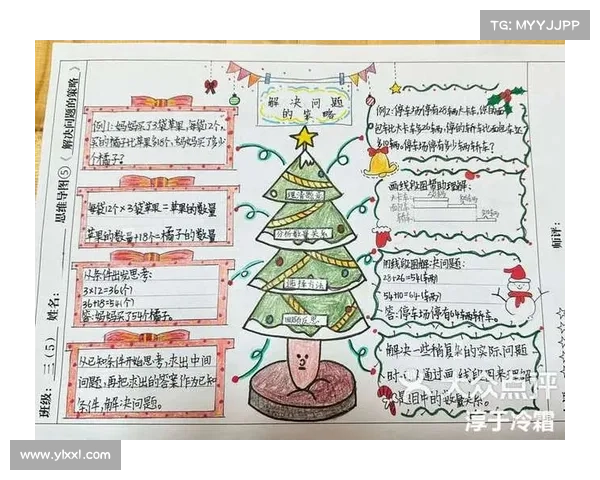 TG: MYYJJPP
思维导图⑤《解决问题的策略》
班级：三(5) 姓名：
师评：
解决问题
的策略
例1:妈妈买了3袋苹果,每袋12个,
买的橘子比苹果多18个,妈妈买了多少
个橘子?
每袋12个×3袋苹果=苹果的数量
苹果的数量+18个=橘子的数量
从条件出发思考:
3×12=36(个)
36+18=54(个)
答:妈妈买了54个橘子。
从已知条件开始思考,求出中间
问题,再把求出的答案作为已知
条件,解决问题。
理清题意
分析数量关系
选择方法
回顾反思
停车场停有多少辆轿车?
画线段图帮助理解:
用线段图解决问题:
28+26=54(辆)
54+10=64(辆)
答:停车场停有64辆轿车。
解决一些稍复杂的实际问题
时,可以通过画线段图来理解
题目中的数量关系。
大众点评
淳于冷霜
www.ylxxl.com